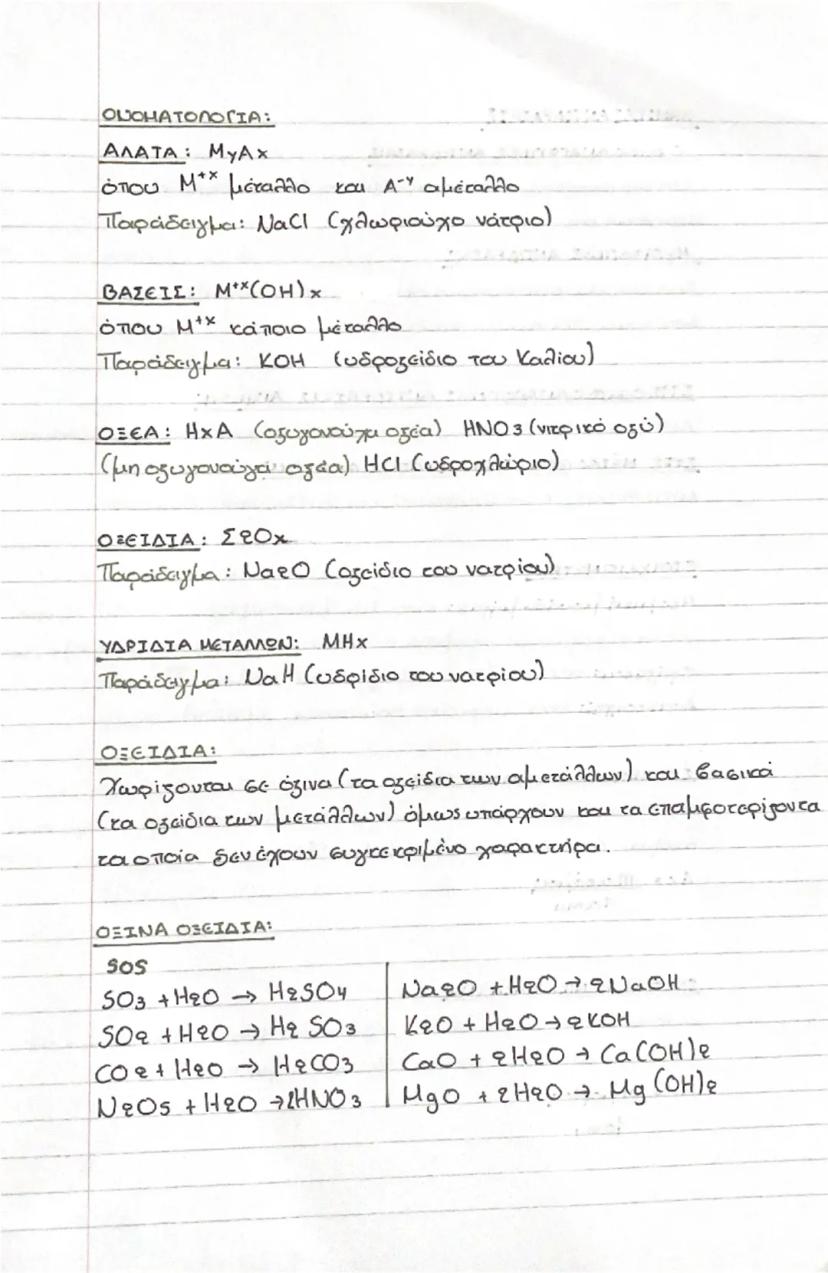 ΟΝΟΜΑΤΟΛΟΓΙΑ:
ΑΛΑΤΑ: MyAx
όπου M⁺ˣ μέταλλο και A⁻ʸ αμέταλλο
Παράδειγμα: NaCl (χλωριούχο νάτριο)
ΒΑΣΕΙΣ: M⁺ˣ(OH)x
όπου M⁺ˣ κάποιο μέταλλο
Παράδειγμα: KOH (υδροξείδιο του Καλίου)
ΟΞΕΑ: HxA (οξυγονούχα οξέα) HNO3 (νιτρικό οξύ)
(μη οξυγονούχα οξέα) HCl (υδροχλώριο)
ΟΞΕΙΔΙΑ: Σ2Ox
Παράδειγμα: Na2O (οξείδιο του νατρίου)
ΥΔΡΙΔΙΑ ΜΕΤΑΛΛΩΝ: MHx
Παράδειγμα: NaH (υδρίδιο του νατρίου)
ΟΞΕΙΔΙΑ:
Χωρίζονται σε όξινα (τα οξείδια των αμετάλλων) και βασικά
(τα οξείδια των μετάλλων) όμως υπάρχουν και τα επαμφοτερίζοντα
τα οποία δεν έχουν συγκεκριμένο χαρακτήρα.
ΟΞΙΝΑ ΟΞΕΙΔΙΑ:
SOS
SO3 + H2O → H2SO4
SO2 + H2O → H2SO3
CO2 + H2O → H2CO3
N2O5 + H2O → 2HNO3
Na2O + H2O → 2NaOH
K2O + H2O → 2KOH
CaO + 2H2O → Ca(OH)2
MgO + 2H2O → Mg(OH)2